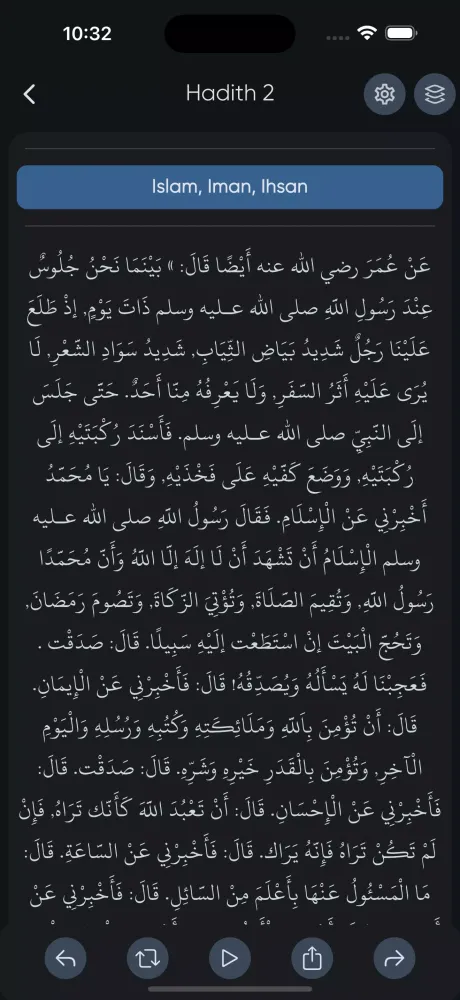 10:32
Hadith 2
Islam, Iman, Ihsan
عَنْ عُمَرَ رضي الله عنه أَيْضًا قَالَ: » بَيْنَمَا نَحْنُ جُلُوسٌ
عِنْدَ رَسُولِ اللَّهِ صلى الله عليه وسلم ذَاتَ يَوْمٍ, إذْ طَلَعَ
عَلَيْنَا رَجُلٌ شَدِيدُ بَيَاضِ الثِّيَابِ, شَدِيدُ سَوَادِ الشَّعْرِ, لَا
يُرَى عَلَيْهِ أَثَرُ السَّفَرِ, وَلَا يَعْرِفُهُ مِنَّا أَحَدٌ. حَتَّى جَلَسَ
إلَى النَّبِيِّ صلى الله عليه وسلم. فَأَسْنَدَ رُكْبَتَيْهِ إلَى
رُكْبَتَيْهِ, وَوَضَعَ كَفَّيْهِ عَلَى فَخْذَيْهِ, وَقَالَ: يَا مُحَمَّدُ
أَخْبِرْنِي عَنْ الْإِسْلَامِ. فَقَالَ رَسُولُ اللَّهِ صلى الله عليه
وسلم الْإِسْلَامُ أَنْ تَشْهَدَ أَنْ لَا إلَهَ إلَّا اللَّهُ وَأَنَّ مُحَمَّدًا
رَسُولُ اللَّهِ, وَتُقِيمَ الصَّلَاةَ, وَتُؤْتِيَ الزَّكَاةَ, وَتَصُومَ رَمَضَانَ,
وَتَحُجَّ الْبَيْتَ إنْ اسْتَطَعْت إلَيْهِ سَبِيلًا. قَالَ: صَدَقْت .
فَعَجِبْنَا لَهُ يَسْأَلُهُ وَيُصَدِّقُهُ! قَالَ: فَأَخْبِرْنِي عَنْ الْإِيمَانِ.
قَالَ: أَنْ تُؤْمِنَ بِاَللَّهِ وَمَلَائِكَتِهِ وَكُتُبِهِ وَرُسُلِهِ وَالْيَوْمِ
الْآخِرِ, وَتُؤْمِنَ بِالْقَدَرِ خَيْرِهِ وَشَرِّهِ. قَالَ: صَدَقْت. قَالَ:
فَأَخْبِرْنِي عَنْ الْإِحْسَانِ. قَالَ: أَنْ تَعْبُدَ اللَّهَ كَأَنَّك تَرَاهُ, فَإِنْ
لَمْ تَكُنْ تَرَاهُ فَإِنَّهُ يَرَاك. قَالَ: فَأَخْبِرْنِي عَنْ السَّاعَةِ. قَالَ:
مَا الْمَسْئُولُ عَنْهَا بِأَعْلَمَ مِنْ السَّائِلِ. قَالَ: فَأَخْبِرْنِي عَنْ